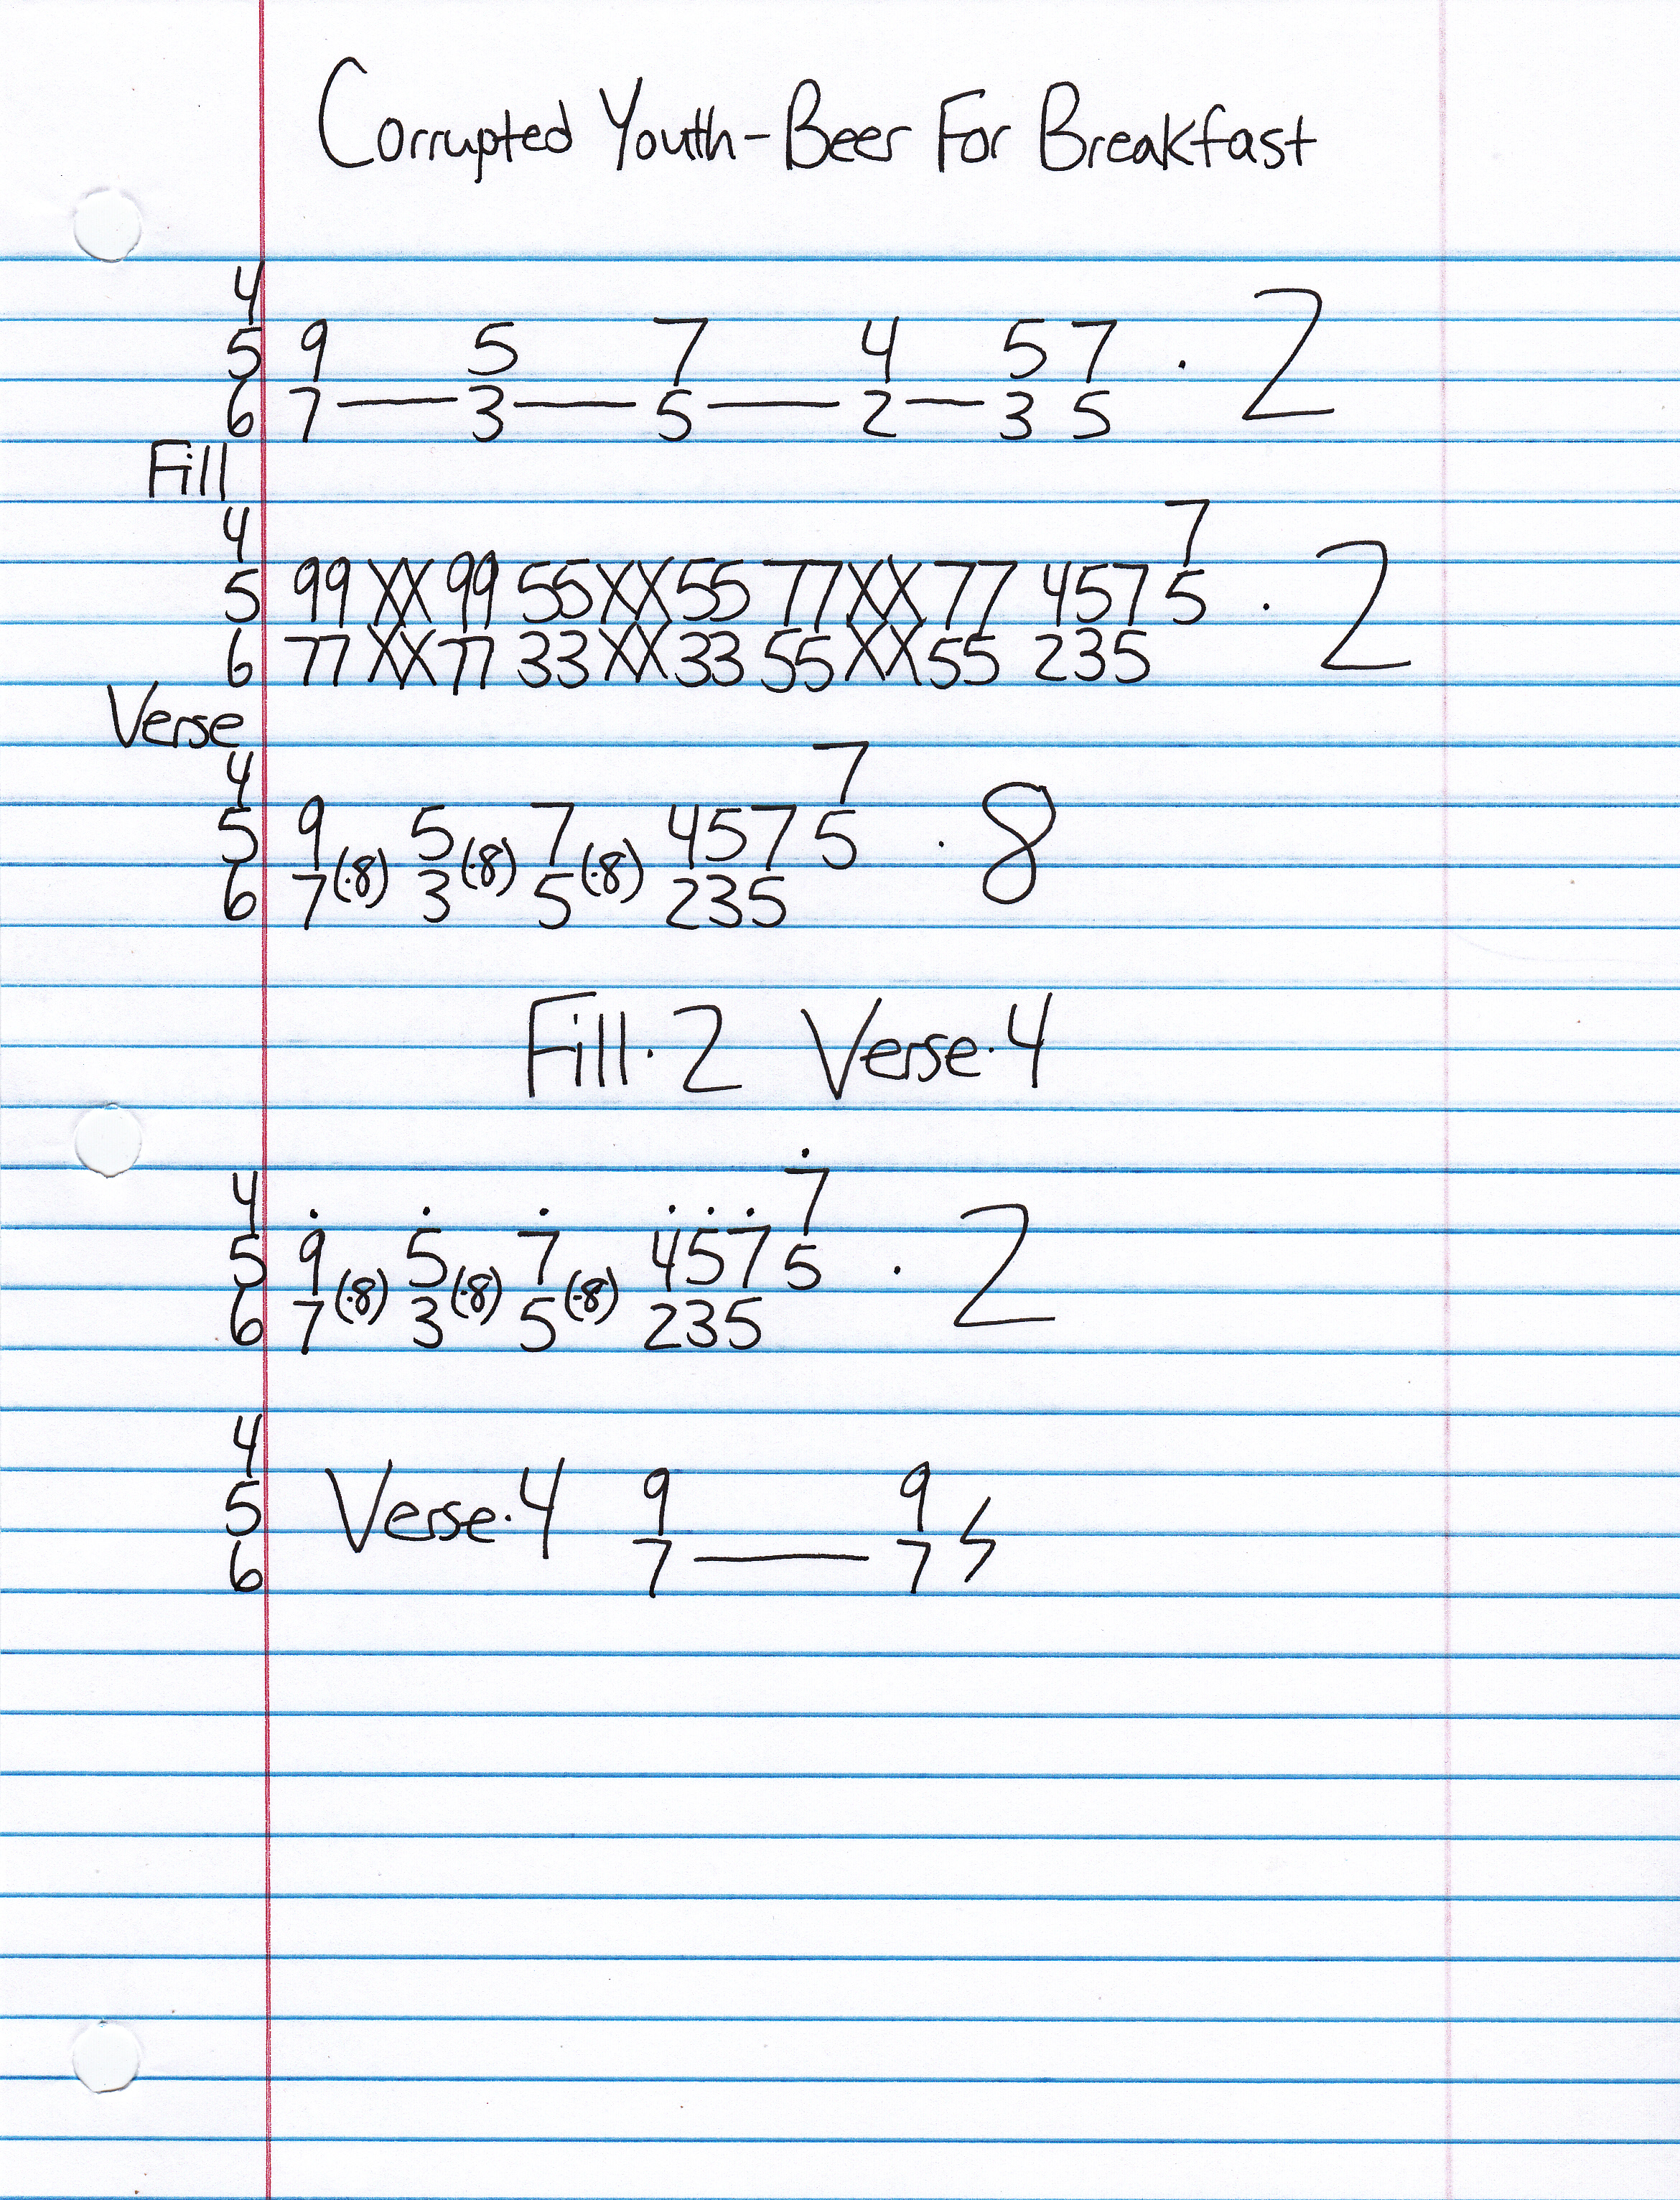 Corrupted Youth-Beer For Breakfast
4
5 9 5 7 4 5 7 · 2
6 7 — 3 — 5 — 2 — 3 5
Fill
4 7
5 99 XX 99 55 XX 55 77 XX 77 457 5 · 2
6 77 XX 77 33 XX 33 55 XX 55 235
Verse
4 7
5 9 (·8) 5 (·8) 7 (·8) 457 5 · 8
6 7 3 5 235
Fill·2 Verse·4
4 7
5 9 (·8) 5 (·8) 7 (·8) 457 5 · 2
6 7 3 5 235
4
5 Verse·4 9 9
6 7 — 7